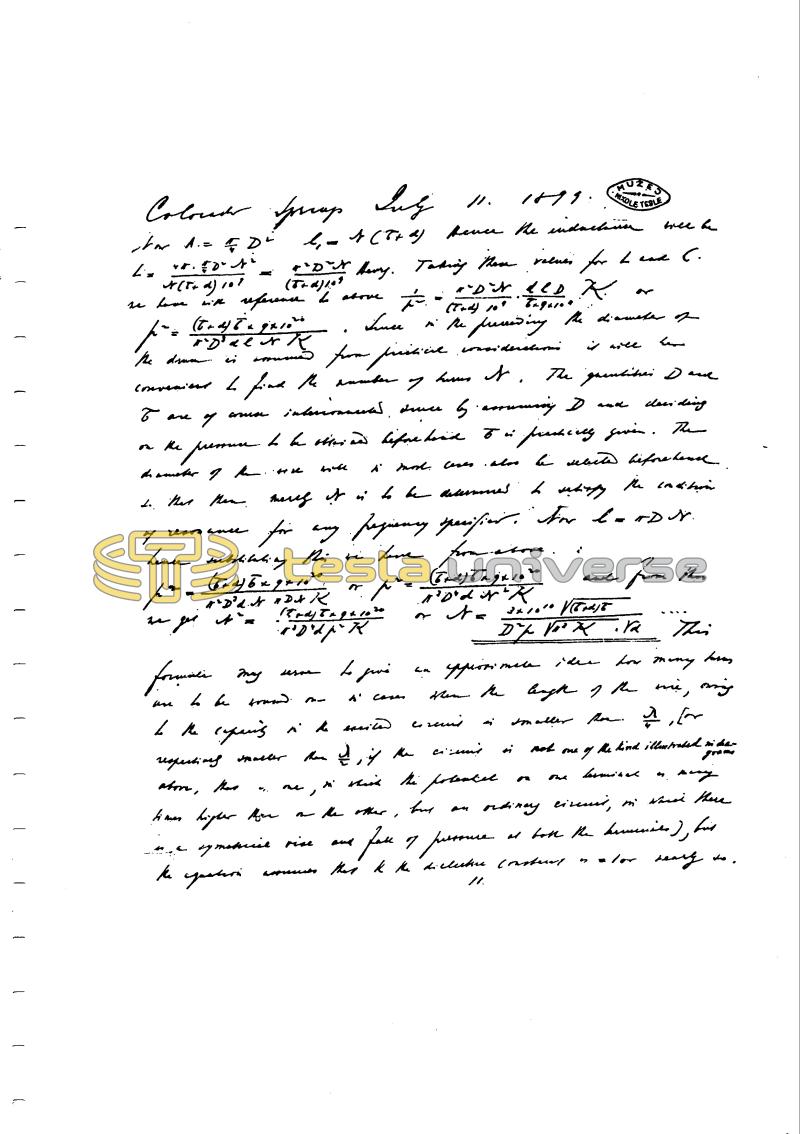 Colorado Springs July 11. 1899.
MUZEJ
NIKOLE TESLE
Now A = π/4 D² l₁ = N(τ+d) Hence the inductance will be
L = 4π·π/4 D² N² / N(τ+d)10⁹ = π²D²N / (τ+d)10⁹ Henry. Taking these values for L and C.
we have with reference to above 1/p² = π²D²N / (τ+d)10⁹ · d l D / τ×9×10¹¹ K or
p² = (τ+d)τ×9×10²⁰ / π²D³ d l N K. Since in the preceding the diameter of
the drum is assumed from practical considerations it will be
convenient to find the number of turns N. The quantities D and
τ are of course interconnected since by assuming D and deciding
on the pressure to be obtained beforehand τ is practically given. The
diameter of the wire will in most cases also be selected beforehand
so that then merely N is to be determined to satisfy the condition
of resonance for any frequency specified. Now l = πDN.
hence substituting this we have from above :
testa universe
p² = (τ+d)τ×9×10²⁰ / π²D³d N πDN K or p² = (τ+d)τ×9×10²⁰ / π³D⁴d N² K and from this
we get N² = (τ+d)τ×9×10²⁰ / π³D⁴d p² K or N = 3×10¹⁰ √(τ+d)τ / D²p √π³ K · √d .... This
formula may serve to give an approximate idea how many turns
are to be wound on in cases when the length of the wire, owing
to the capacity in the excited circuit is smaller than λ/4, [or
respectively smaller than λ/2, if the circuit is not one of the kind illustrated in diagrams
above, that is one, in which the potential on one terminal is many
times higher than on the other, but an ordinary circuit, in which there
is a symmetrical rise and fall of pressure at both the terminals], but
the equation assumes that K the dielectric constant is = 1 or nearly so.